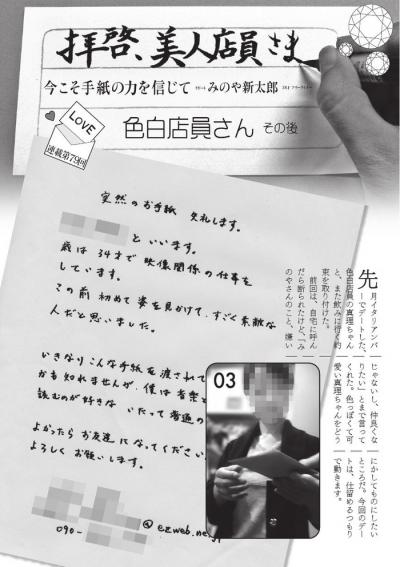 拝啓、美人店員さま
今こそ手紙の力を信じて
みのや新太郎
色白店員さん その後
LOVE
連載第79回
突然のお手紙 失礼します。
といいます。
歳は34才で映像関係の仕事を
しています。
この前初めて姿を見かけて、すごく素敵な
人だと思いました。
いきなりこんな手紙を渡されて
かも知れませんが、僕は音楽と
読むのが好きな いたって普通の
よかったらお友達になってください。
よろしくお願いします。
@ezweb.ne.jp
090-
03
先月イタリアンバ
ーでデートした、
色白店員の真理ちゃん
と、また飲みに行く約
束を取り付けた。
前回は、自宅に呼ん
だら断られたけど、「み
のやさんのこと、嫌い
じゃないし、仲良くな
りたい」とまで言って
くれた。色っぽくて可
愛い真理ちゃんをどう
にかしてものにしたい
ところだ。今回のデー
トは、仕留めるつもり
で動きます。